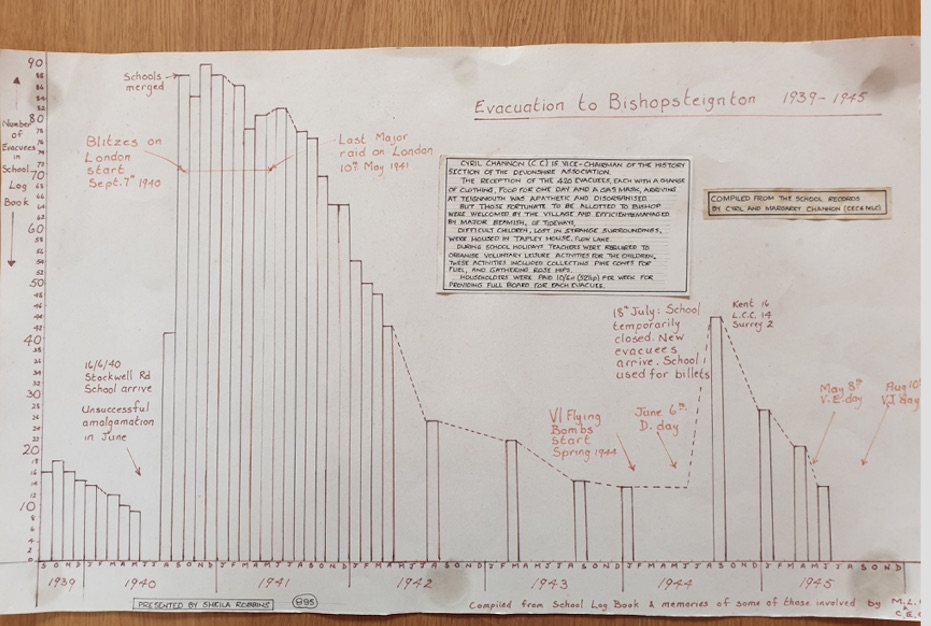 Evacuation to Bishopsteignton 1939-1945
Schools
merged
Number
of
Evacuees
in
School
Log
Book
90
80
70
60
50
40
30
20
10
Blitzes on
London
start
Sept. 7th 1940
Last Major
raid on London
10th May 1941
CYRIL CHANNON (C.C) IS VICE-CHAIRMAN OF THE HISTORY
SECTION OF THE DEVONSHIRE ASSOCIATION.
THE RECEPTION OF THE 420 EVACUEES, EACH WITH A CHANGE
OF CLOTHING, FOOD FOR ONE DAY AND A GAS MASK, ARRIVING
AT TEIGNMOUTH WAS APATHETIC AND DISORGANISED.
BUT THOSE FORTUNATE TO BE ALLOTTED TO BISHOP
WERE WELCOMED BY THE VILLAGE AND EFFICIENTLY MANAGED
BY MAJOR BEAMISH, OF TIDEWAYS.
DIFFICULT CHILDREN, LOST IN STRANGE SURROUNDINGS,
WERE HOUSED IN TAPLEY HOUSE, FLOW LANE.
DURING SCHOOL HOLIDAYS TEACHERS WERE REQUIRED TO
ORGANISE VOLUNTARY LEISURE ACTIVITIES FOR THE CHILDREN,
THESE ACTIVITIES INCLUDED COLLECTING PINE CONES FOR
FUEL, AND GATHERING ROSE HIPS.
HOUSEHOLDERS WERE PAID 10/6d (52½p) PER WEEK FOR
PROVIDING FULL BOARD FOR EACH EVACUEE.
COMPILED FROM THE SCHOOL RECORDS
BY CYRIL AND MARGARET CHANNON
16/6/40
Stockwell Rd
School arrive
Unsuccessful
amalgamation
in June
18th July: School
temporarily
closed. New
evacuees
arrive. School
used for billets
Kent 16
L.C.C. 14
Surrey 2
V1 Flying
Bombs
start
Spring 1944
June 6th
D. day
May 8th
V.E. day
Aug 10th
V.J. day
S O N D J F M A M J J A S O N D J F M A M J J A S O N D J F M A M J J A S O N D J F M A M J J A S O N D J F M A M J J A S O N D J F M A M J J A S O N D
1939 1940 1941 1942 1943 1944 1945
PRESENTED BY SHEILA ROBBINS
895
Compiled from School Log Book & memories of some of those involved by M.L.